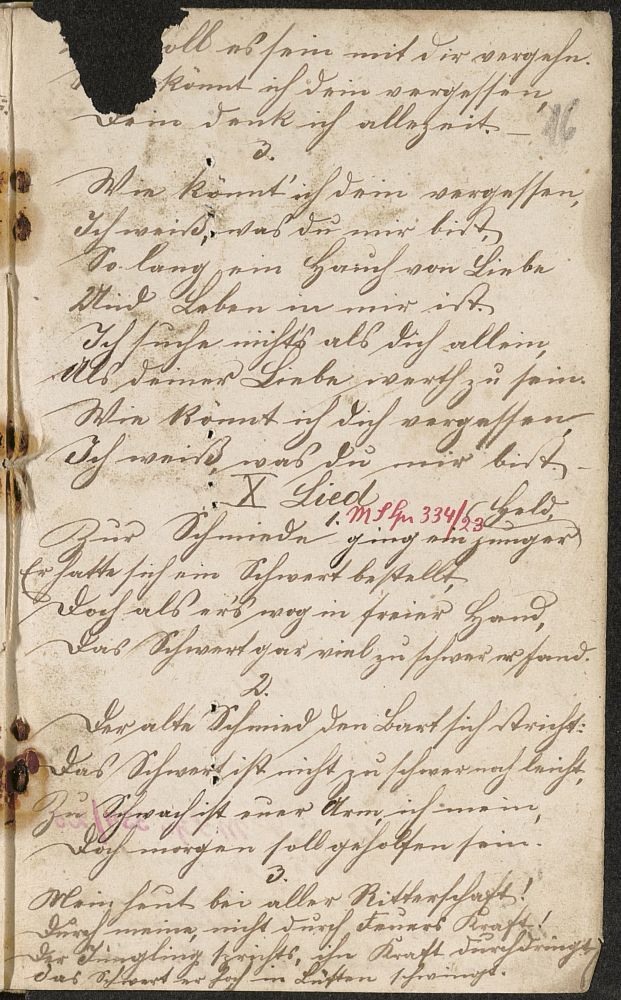 soll es sein mit dir vergehn.
könnt ich dein vergessen,
Dein denk ich allezeit. –
16
3.
Wie könnt' ich dein vergessen,
Ich weiß, was du mir bist,
So lang ein Hauch von Liebe
Und Leben in mir ist.
Ich suche nichts als dich allein,
Als deiner Liebe werth zu sein.
Wie könnt ich dich vergessen,
Ich weiß, was du mir bist –
X Lied
1. MSgn 334/23
Zur Schmiede ging ein junger Held,
Er hatte sich ein Schwert bestellt,
Doch als er's wog in freier Hand,
Das Schwert gar viel zu schwer erfand.
2.
Der alte Schmied den Bart sich stricht:
Das Schwert ist nicht zu schwer noch leicht,
Zu Schwach ist euer Arm, ich mein,
Doch morgen soll geholfen sein.
3.
Nein heut bei aller Ritterschaft!
Durch meine, nicht durch Feuers Kraft!
Der Jüngling sprichts, ihn Kraft durchdringt
Das Schwert er hoch in Lüften schwingt.